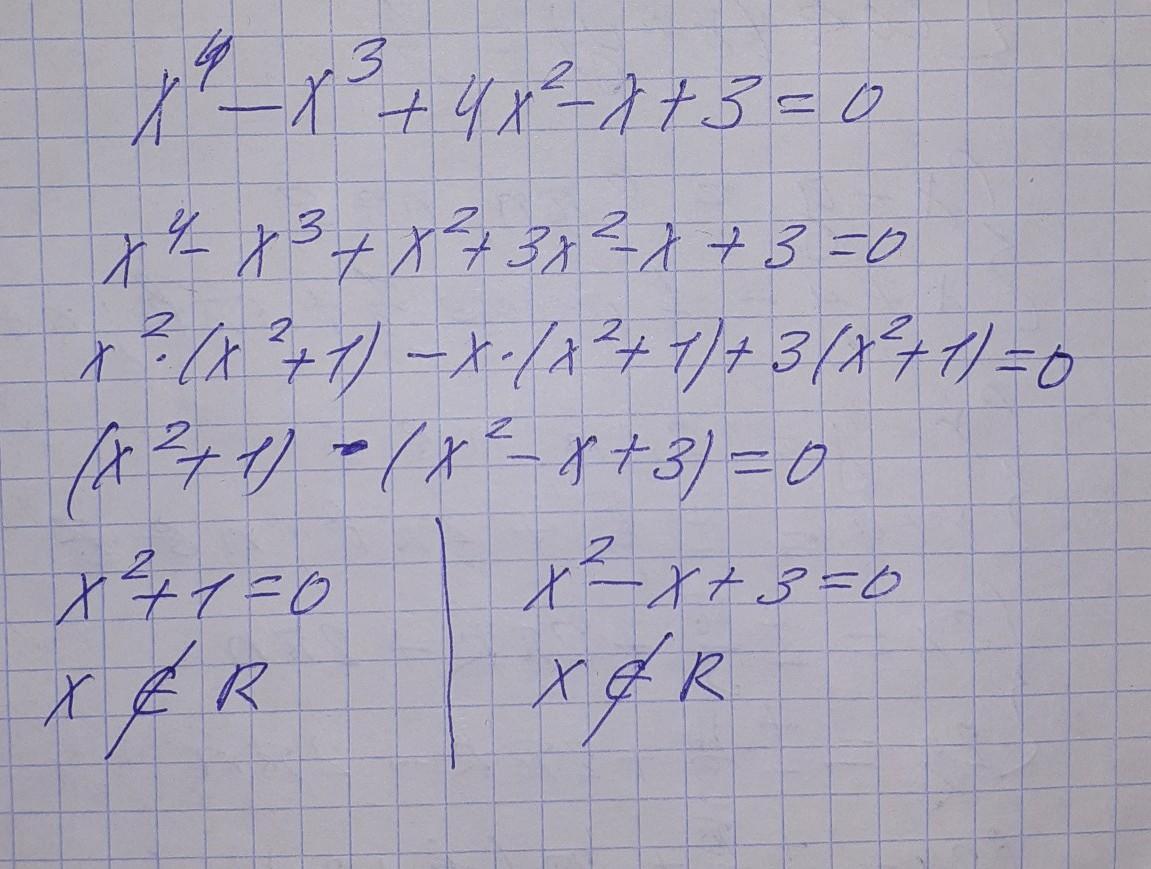 x⁴ − x³ + 4x² − x + 3 = 0
x⁴ − x³ + x² + 3x² − x + 3 = 0
x² · (x² + 1) − x · (x² + 1) + 3(x² + 1) = 0
(x² + 1) · (x² − x + 3) = 0
x² + 1 = 0 | x² − x + 3 = 0
x ∉ R | x ∉ R